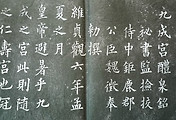 九成宮醴泉銘
秘書監檢校
侍中鉅鹿郡
公臣魏徵奉
勅撰
維貞觀六年孟
夏之月
皇帝避暑乎九
成之宮此則隨
之仁壽宮也冠